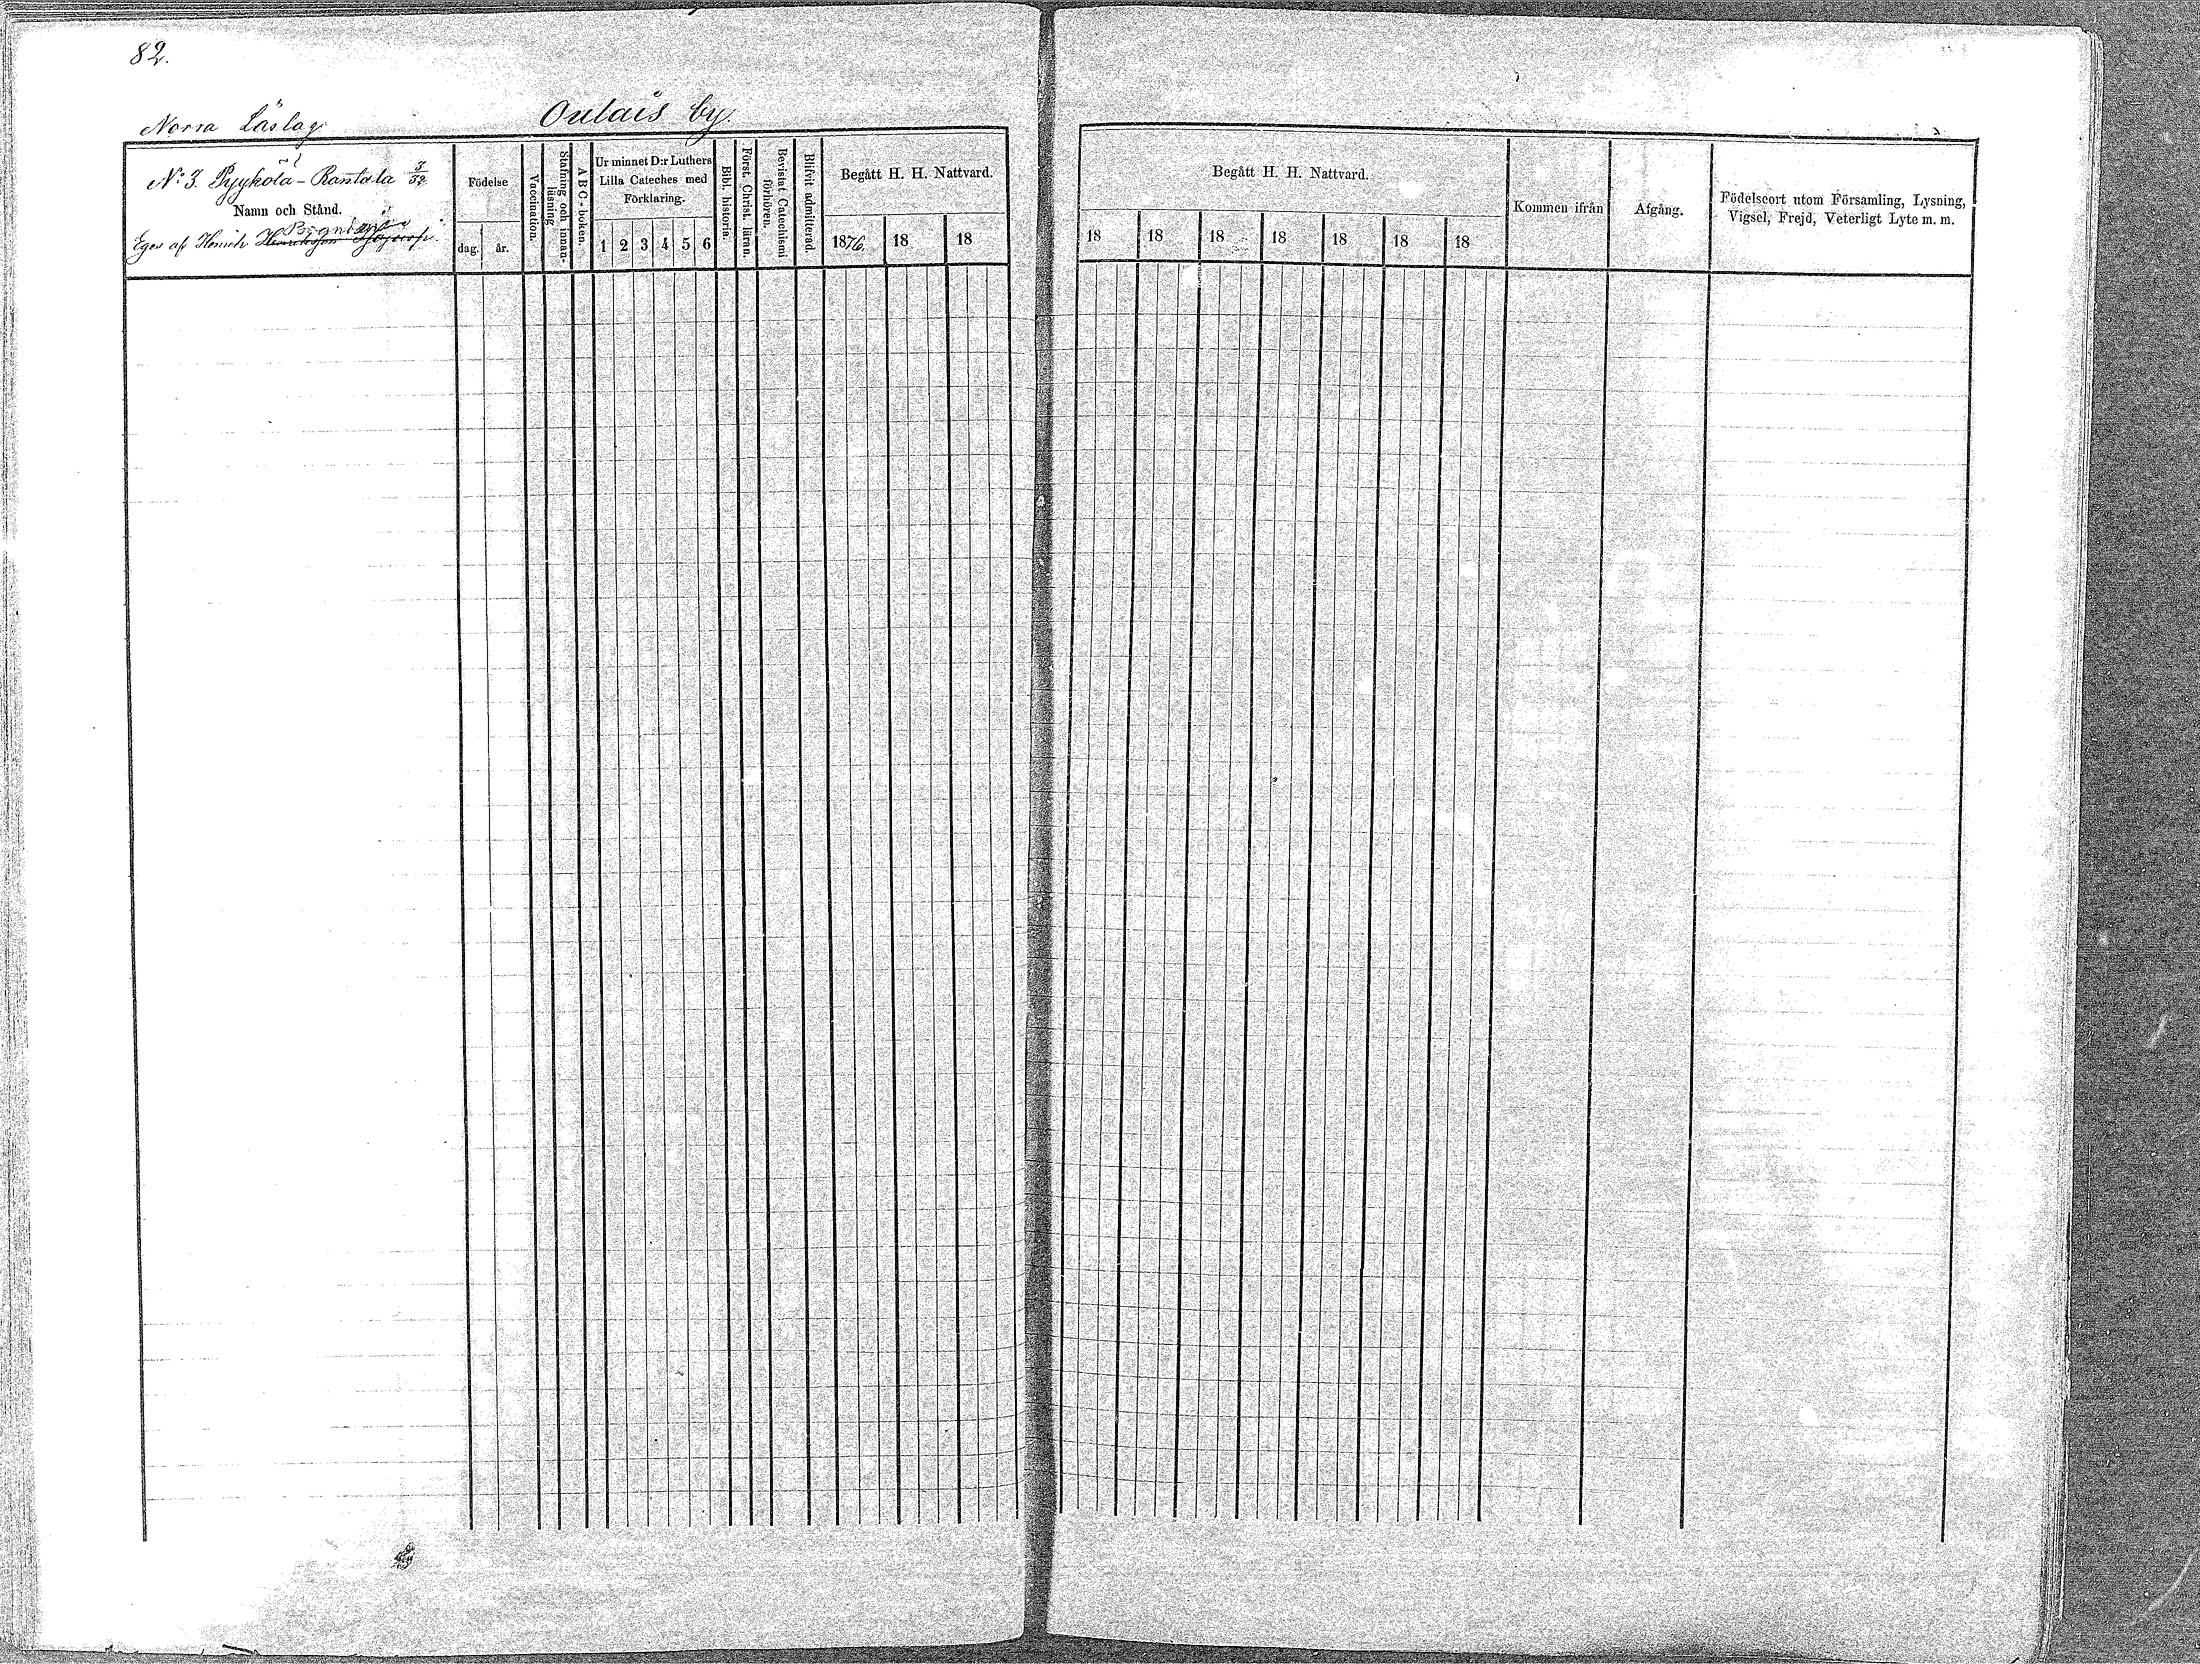 82.
Norra Läslag
Oulais by.
N:o 3. Pyykölä-Rantala 7/32
Namn och Stånd.
Eges af Henrik
Födelse
dag. år.
Vaccination.
Stafning och innan-
läsning
A B C-boken.
Ur minnet D:r Luthers
Lilla Cateches med
Förklaring.
1 2 3 4 5 6
Bibl. historia.
Först. Christ. läran.
Bevistat Catechismi
förhören.
Blifvit admitterad.
Begått H. H. Nattvard.
1876. 18 18
Begått H. H. Nattvard.
18 18 18 18 18 18 18
Kommen ifrån
Afgång.
Födelseort utom Församling, Lysning,
Vigsel, Frejd, Veterligt Lyte m. m.